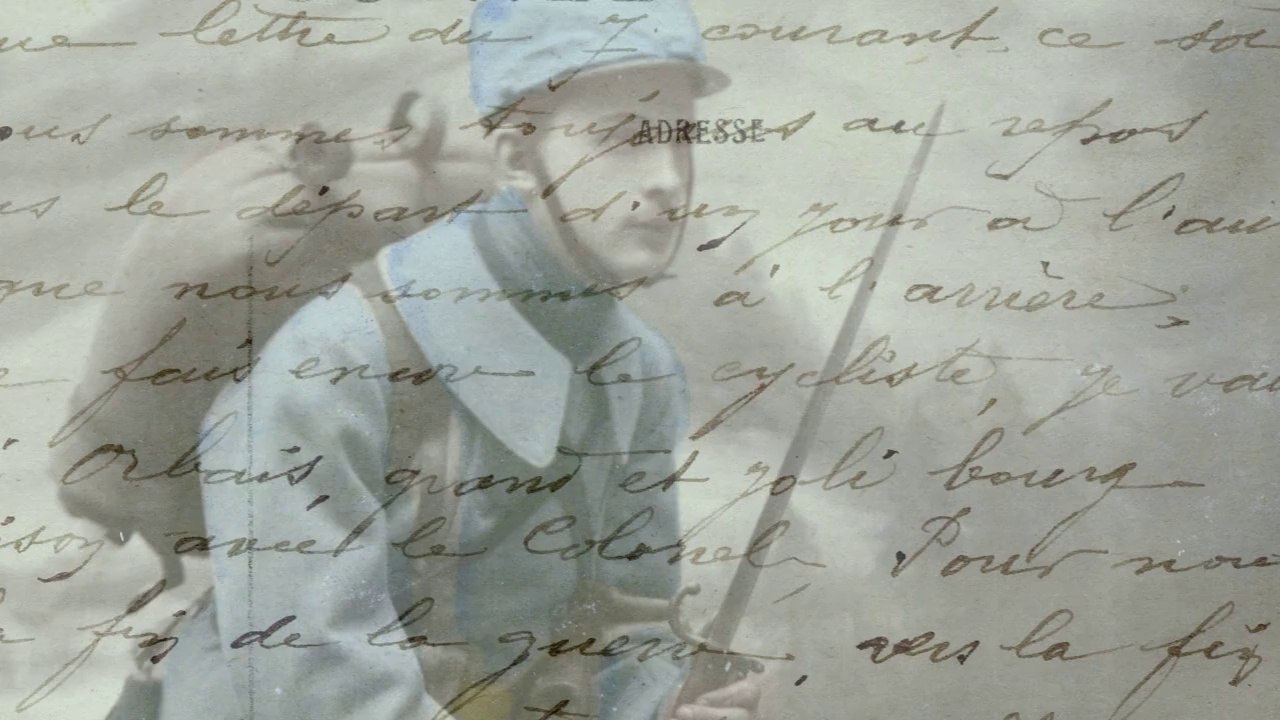 lettre du 7 courant ce
sommes toujours au repos
ADRESSE
le départ d'un jour à l'au
que nous sommes à l'arrière,
fais encore le cycliste, je vai
Orbais, grand et joli bourg
avec le Colonel. Pour nou
fin de la guerre, vers la fin